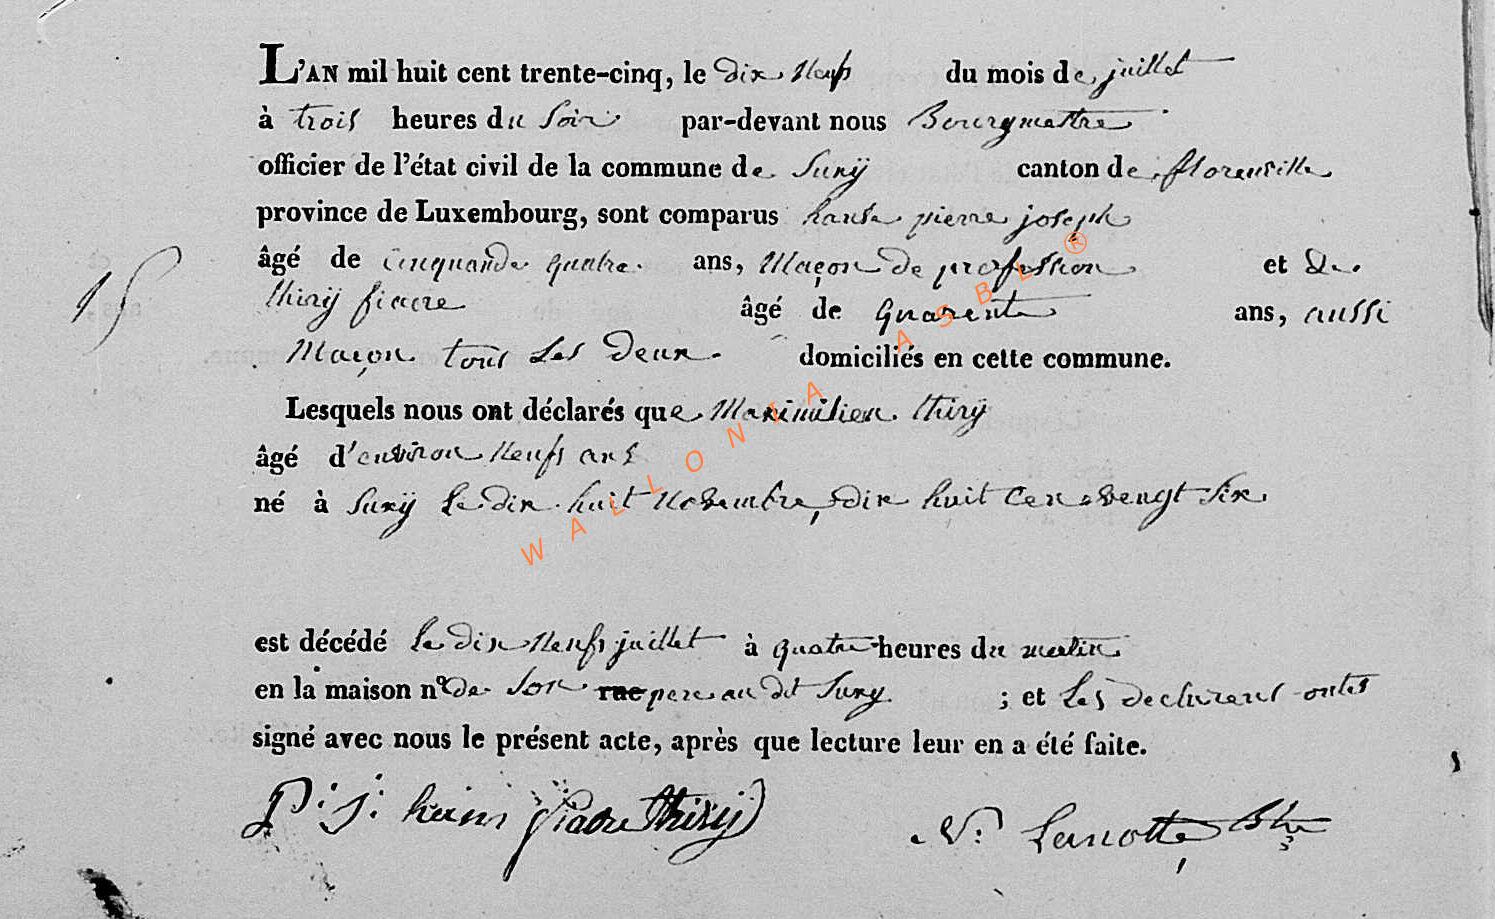 L'AN mil huit cent trente-cinq, le dix Neufs du mois de juillet
à trois heures du Soir par-devant nous Bourgmettre
officier de l'état civil de la commune de Suxÿ canton de florenville
province de Luxembourg, sont comparus pierre joseph
âgé de Cinquande quatre ans, Maçon de profession et de
15 thirÿ fiacre âgé de quarente ans, aussi
Maçon tous Les Deux domiciliés en cette commune.
Lesquels nous ont déclarés que Maximilien thirÿ
âgé d'environ Neufs ans
né à Suxÿ Le dix huit Novembre, dix huit Cens vengt Six
est décédé Le dix Neufs juillet à quatre heures du matin
en la maison n° de Son rue pere au dit Suxy ; et Les declarens ontes
signé avec nous le présent acte, après que lecture leur en a été faite.
P. j. fiacre thirÿ N. Lanotte
WALLONIA ASBL ®